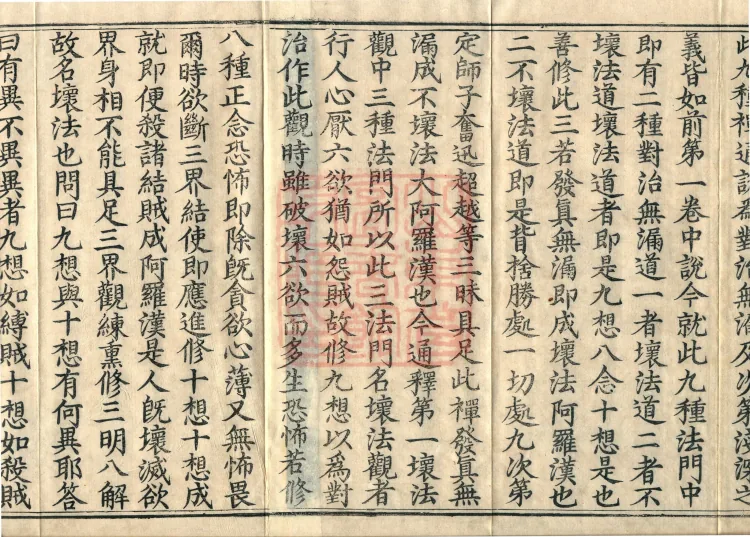 義皆如前第一卷中說今就此九種法門中
即有二種對治無漏道一者壞法道二者不
壞法道壞法道者即是九想八念十想是也
善修此三若發眞無漏即成壞法阿羅漢也
二不壞法道即是背捨勝處一切處九次第
定師子奮迅超越等三昧具足此禪發眞無
漏成不壞法大阿羅漢也今通釋第一壞法
觀中三種法門所以此三法門名壞法觀者
行人心厭六欲猶如怨賊故修九想以爲對
治作此觀時雖破壞六欲而多生恐怖若修
八種正念恐怖即除旣貪欲心薄又無怖畏
爾時欲斷三界結使即應進修十想十想成
就即便殺諸結賊成阿羅漢是人旣壞滅欲
界身相不能具足三界觀練熏修三明八解
故名壞法也問曰九想與十想有何異耶答
曰有異不異異者九想如縛賊十想如殺賊